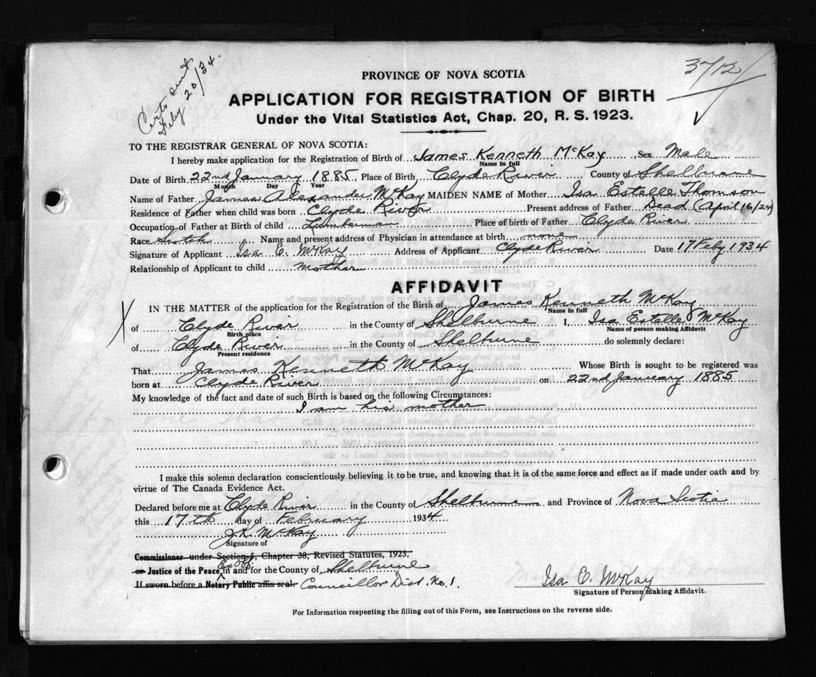 Certs sent
Feby 20/34.
3712
PROVINCE OF NOVA SCOTIA
APPLICATION FOR REGISTRATION OF BIRTH
Under the Vital Statistics Act, Chap. 20, R. S. 1923.
TO THE REGISTRAR GENERAL OF NOVA SCOTIA:
I hereby make application for the Registration of Birth of James Kenneth McKay Sex Male
Name in full
Date of Birth 22nd January 1885 Place of Birth Clyde River County of Shelburne
Month Day Year
Name of Father James Alexander McKay MAIDEN NAME of Mother Isa Estelle Thomson
Residence of Father when child was born Clyde River Present address of Father Dead (April 16/24)
Occupation of Father at Birth of child Lumberman Place of birth of Father Clyde River
Race Scotch Name and present address of Physician in attendance at birth none
Signature of Applicant Isa E. McKay Address of Applicant Clyde River Date 17 Feby 1934
Relationship of Applicant to child mother
AFFIDAVIT
IN THE MATTER of the application for the Registration of the Birth of James Kenneth McKay
Name in full
X of Clyde River in the County of Shelburne I, Isa Estelle McKay
Birth place Name of person making Affidavit
of Clyde River in the County of Shelburne do solemnly declare:
Present residence
That James Kenneth McKay Whose Birth is sought to be registered was
born at Clyde River on 22nd January 1885
My knowledge of the fact and date of such Birth is based on the following Circumstances:
I am his mother
I make this solemn declaration conscientiously believing it to be true, and knowing that it is of the same force and effect as if made under oath and by
virtue of The Canada Evidence Act.
Declared before me at Clyde River in the County of Shelburne and Province of Nova Scotia
this 17th day of February 1934
McKay
Signature of
Commissioner under Section 5, Chapter 38, Revised Statutes, 1923.
Ex Off.
or Justice of the Peace in and for the County of Shelburne
If sworn before a Notary Public affix seal. Councillor Dist. No. 1.
Isa E. McKay
Signature of Person making Affidavit.
For Information respecting the filling out of this Form, see Instructions on the reverse side.